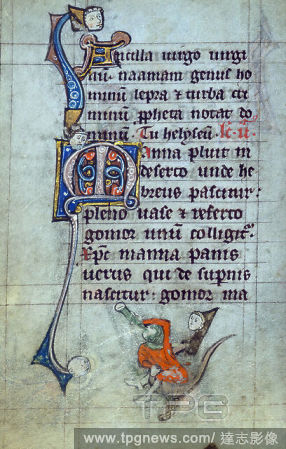 Ancilla uirgo uirgi
nū. naamam genus ho
minū lepra & turba cri
minū ppheta notat do
minū. Tu helyseū.
Manna pluit in
deserto unde he
breus pascitur:
pleno uase & referto
gomor unū colligit
Xpc manna panis
uerus qui de supnis
nascitur: gomor ma
TPG
www.tpgnews.com/ 達志影像